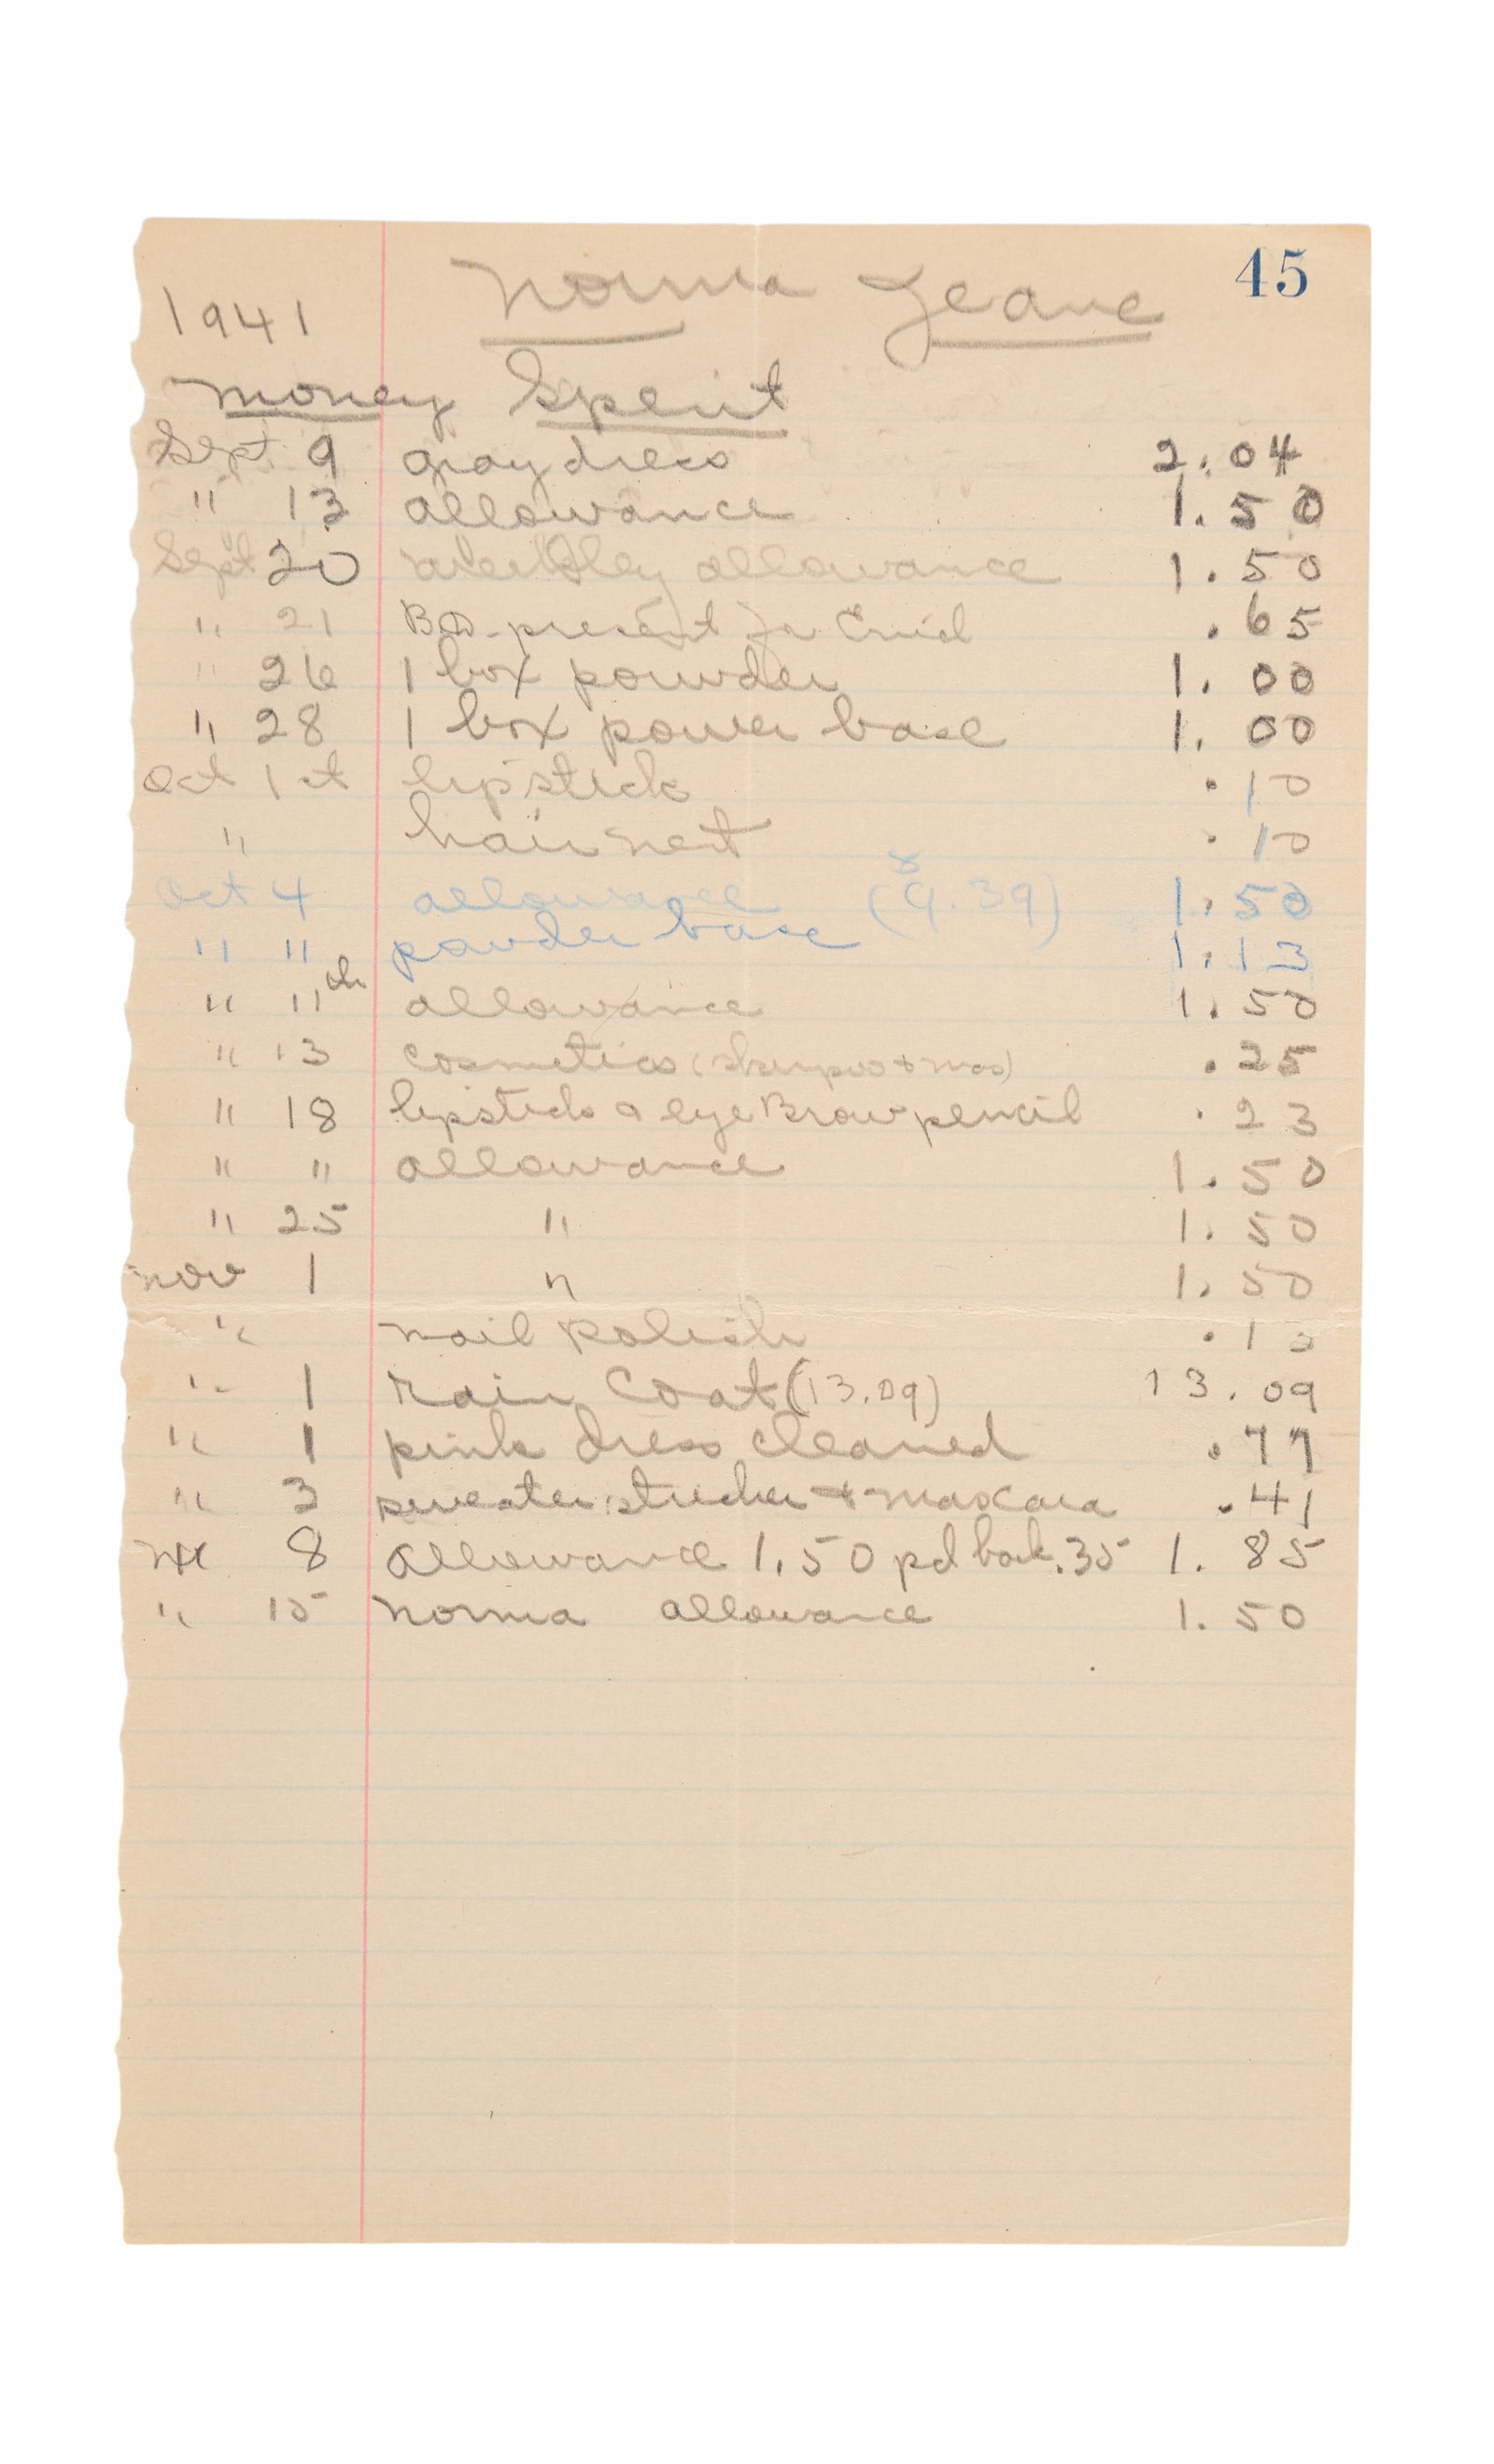 45
Norma Jeane
1941
Money Spent
Sept. 9 gray dress 2.04
" 13 allowance 1.50
Sept 20 allowance 1.50
" 21 BD present for Enid .65
" 26 1 box powder 1.00
" 28 1 box power base 1.00
Oct 1st lipstick .10
" hair net .10
Oct 4 allowance (9.39) 1.50
" 11 powder base 1.13
" 11th allowance 1.50
" 13 cosmetics .25
" 18 lipstick & eye Brow pencil .23
" " allowance 1.50
" 25 " 1.50
Nov 1 " 1.50
" nail polish .13
" 1 rain Coat (13.09) 13.09
" 1 pink dress cleaned .77
" 3 sweater & mascara .41
8 allowance 1.50 pd back .35 1.85
" 15 Norma allowance 1.50